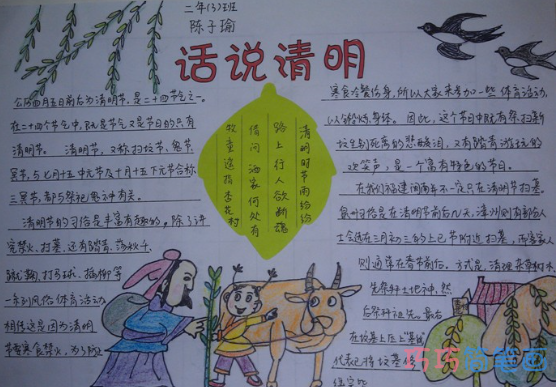 二年(3)班
陈子瑜
话说清明
公历四月五日前后为清明节,是二十四节气之一。
在二十四个节气中,既是节气又是节日的只有
清明节。清明节,又称扫坟节、鬼节、
冥节,与七月十五中元节及十月十五下元节合称
三冥节,都与祭祀鬼神有关。
清明节的习俗是丰富有趣的,除了讲
究禁火、扫墓,还有踏青、荡秋千、
蹴鞠、打马球、插柳等
一系列风俗体育活动
相传这是因为清明
节要寒食禁火,为了防止
清明时节雨纷纷
路上行人欲断魂
借问酒家何处有
牧童遥指杏花村
寒食冷餐伤身,所以大家来参加一些体育活动,
以锻炼身体。因此,这个节日中既有祭扫新
坟生别死离的悲酸泪,又有踏青游玩的
欢笑声,是一个富有特色的节日。
在我们福建闽南并不一定只在清明节扫墓。
泉州习俗是在清明节前后几天,漳州则有部份人
士会在三月初三的上巳节附近扫墓,而客家人
则通常在春节前后。方式是,清理杂草树木
先祭拜土地神,然
后祭拜祖先。最后
在坟墓上压上
代表已将坟墓
巧巧简笔画